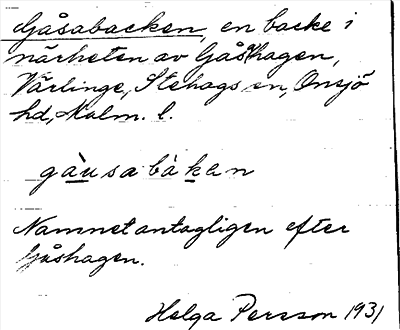 Gåsabacken, en backe i
närheten av Gåshagen,
Värlinge, Stehags sn, Onsjö
hd, Malm. l.
gàusabàkan
Namnet antagligen efter
Gåshagen.
Helga Persson 1931